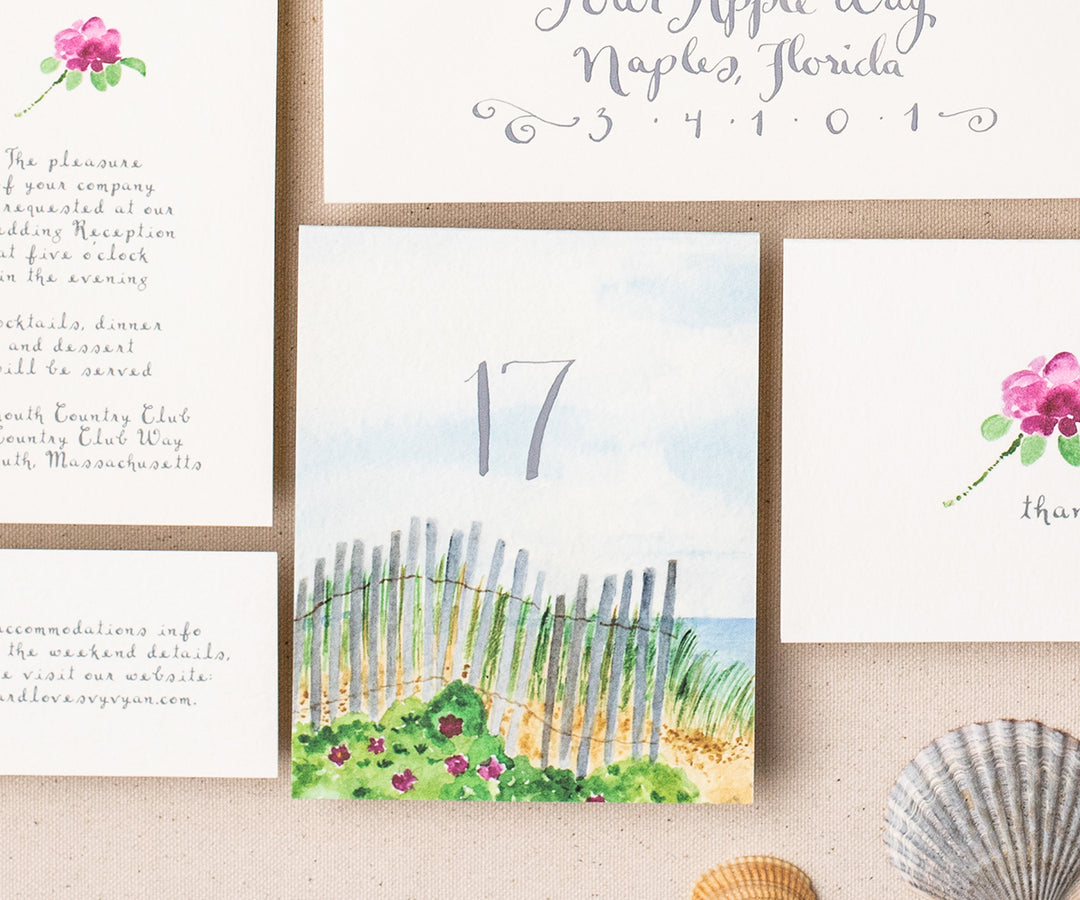 The pleasure
f your company
requested at our
edding Reception
at five o'clock
in the evening
ocktails, dinner
and dessert
ill be served
outh Country Club
Country Club Way
uth, Massachusetts
ccommodations info
the weekend details,
e visit our website:
ardlovesvyvyan.com.
Four Apple Way
Naples, Florida
3 · 4 · 1 · 0 · 1
17
than